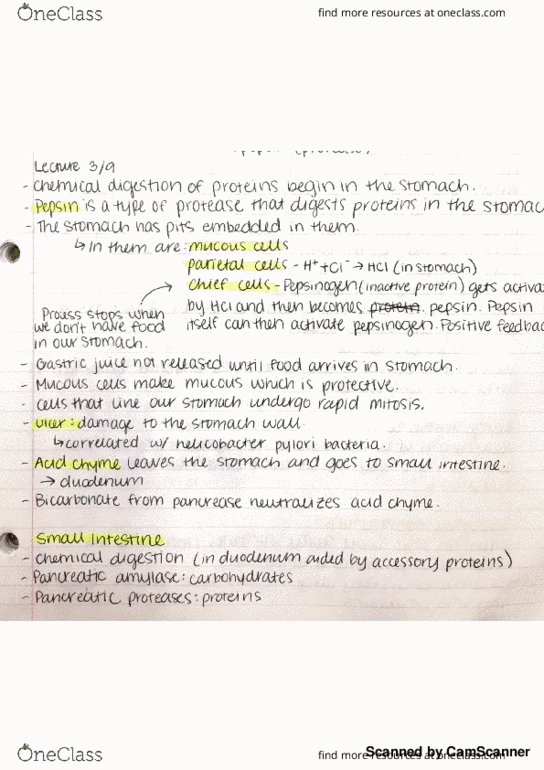 OneClass
find more resources at oneclass.com
Lecture 3/9
- Chemical digestion of proteins begin in the stomach.
- Pepsin is a type of protease that digests proteins in the stomac
- The stomach has pits embedded in them.
↳ In them are: mucous cells
parietal cells - H⁺ + Cl⁻ → HCl (in stomach)
chief cells - Pepsinogen (inactive protein) gets activa
by HCl and then becomes protein. pepsin. Pepsin
itself can then activate pepsinogen. Positive feedbac
Process stops when
we don't have food
in our stomach.
- Gastric juice not released until food arrives in stomach.
- Mucous cells make mucous which is protective.
- Cells that line our stomach undergo rapid mitosis.
- Ulcer: damage to the stomach wall.
↳ correlated w/ helicobacter pylori bacteria.
- Acid chyme leaves the stomach and goes to small intestine.
→ duodenum
- Bicarbonate from pancrease neutralizes acid chyme.
Small Intestine
- Chemical digestion (in duodenum aided by accessory proteins)
- Pancreatic amylase: carbohydrates
- Pancreatic proteases: proteins
OneClass
find more resources at oneclass.com
Scanned by CamScanner